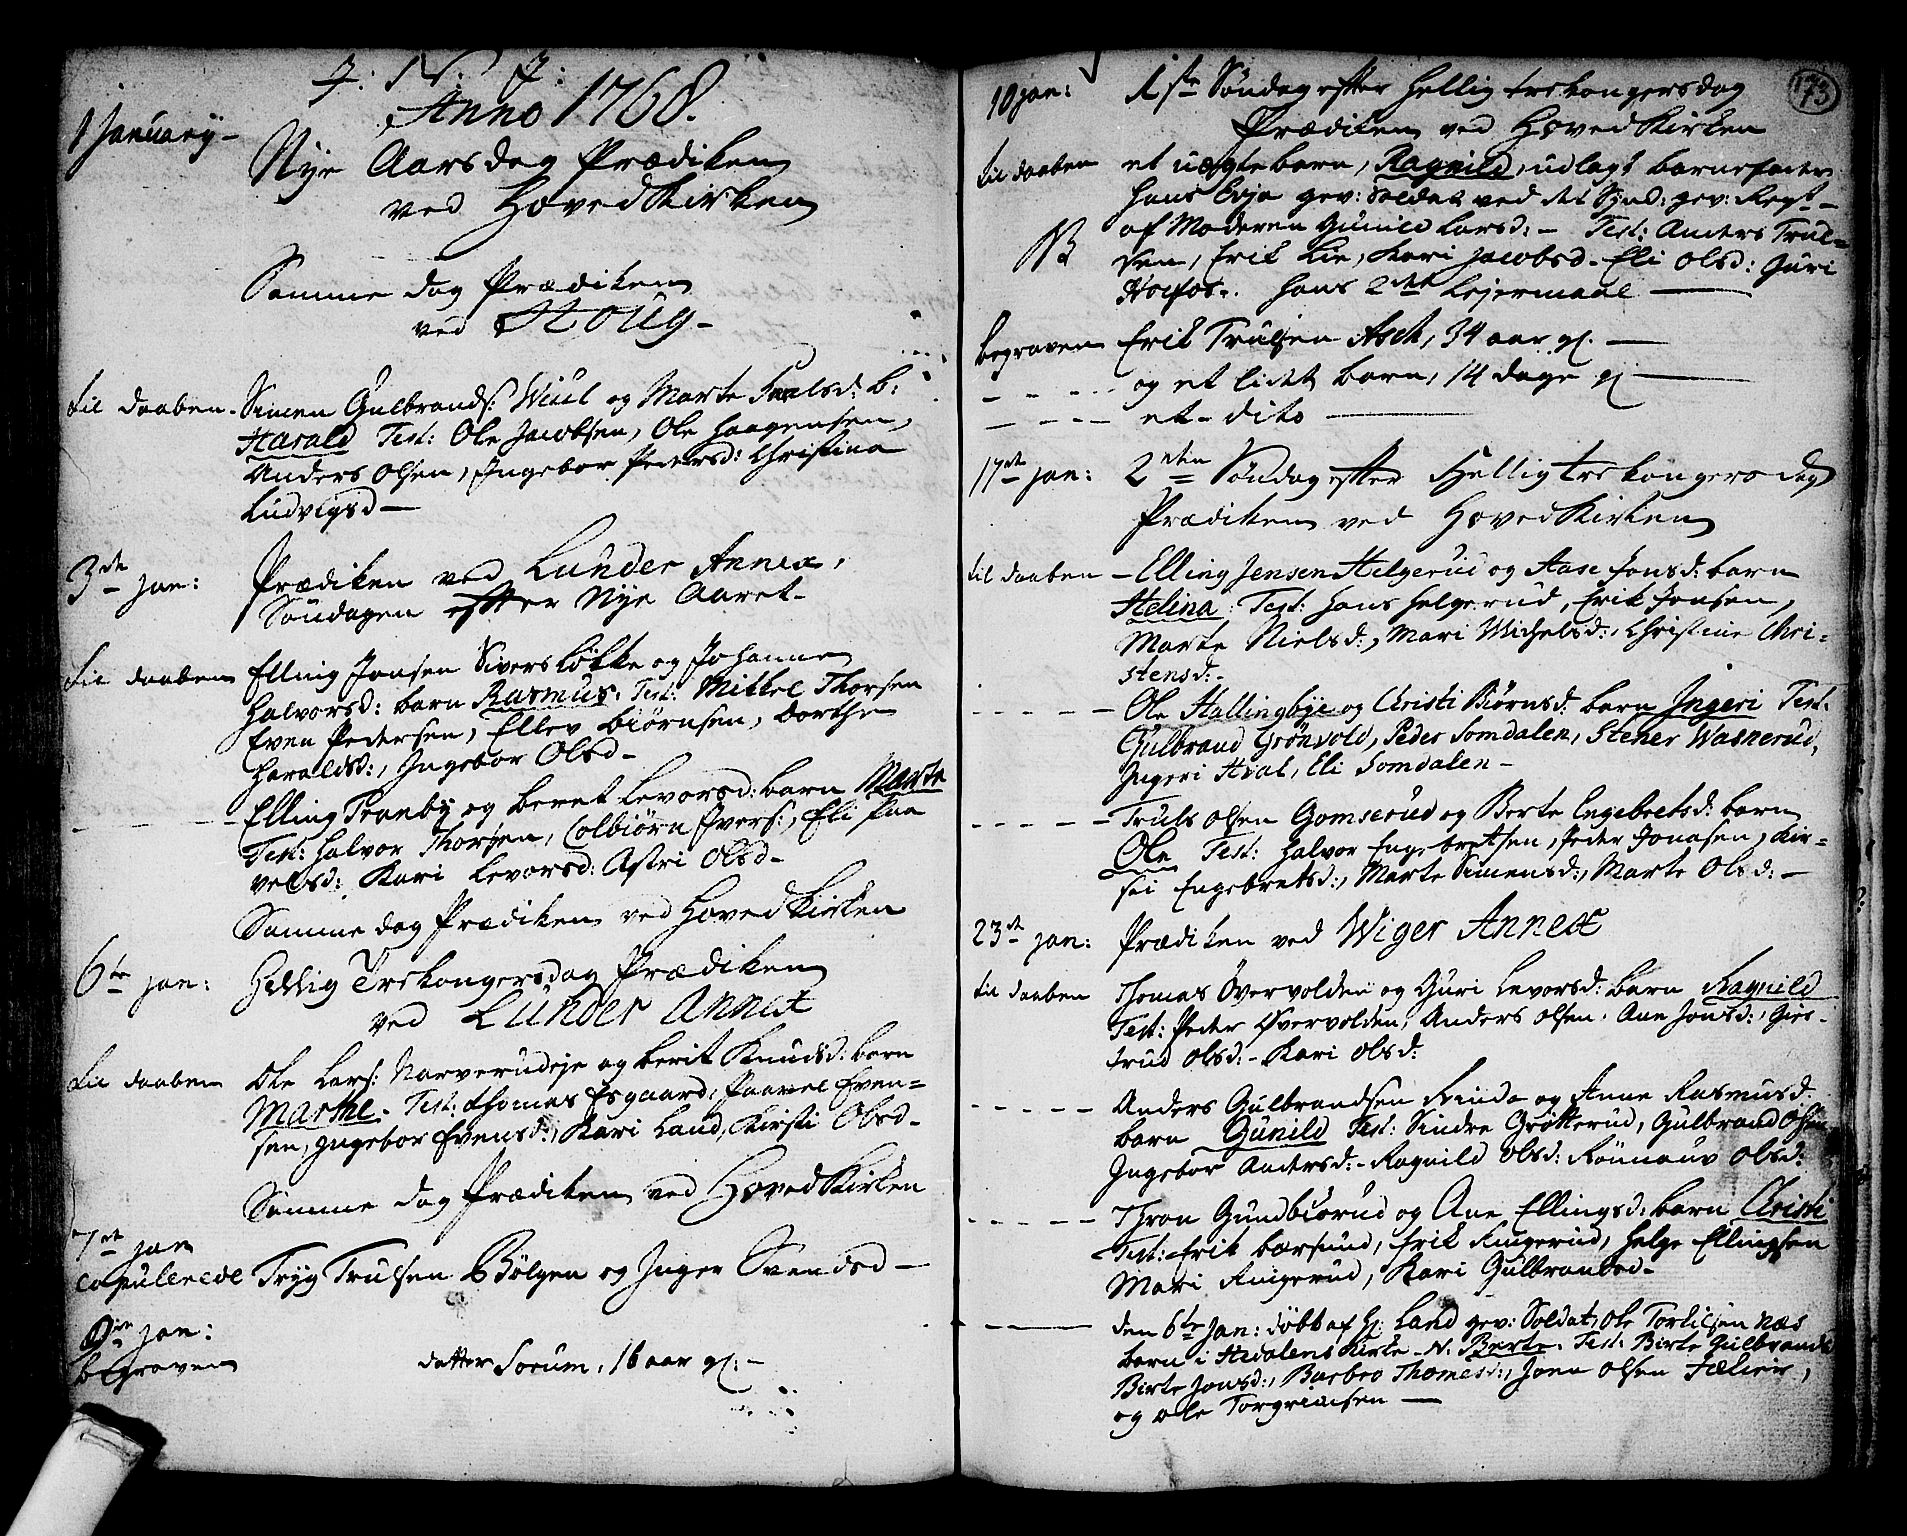 J: N: J:
Anno 1768.
1 January –
Nye Aarsdag Prædiken
ved Hoved Kirken
Samme dag Prædiken
ved Houg –
til daaben. Simen Gulbrands: Wiul og Marte Paalsd: b:
Harald Test: Ole Jacobsen, Ole Haagensen,
Anders Olsen, Ingebor Pedersd: Christina
Ludvigsd –
3de jan: Prædiken ved Lunder Annex,
Søndagen efter Nye Aaret –
til daaben Elling Jonsen Sivers Løkke og Johanne
Halvorsd: barn Rasmus. Test: Mikkel Thorsen
Even Pedersen, Ellev Biørnsen, Dorthe
Haraldsd:, Ingebor Olsd –
– – – – Elling Tranby og Beret Levorsd: barn Marte
Test: Halvor Thorsen, Colbiørn Ivers:, Eli Paa
velsd: Kari Levorsd: Astri Olsd –
Samme dag Prædiken ved Hoved Kirken
6te jan: Hellig Trekongersdag Prædiken
ved Lunder Annex
til daaben Ole Lars: Narverudeje og Berit Knudsd: barn
Marthe. Test: Thomas Esgaard, Paavel Even=
sen, Ingebor Evensd:, Kari Land, Kirsti Olsd –
Samme dag Prædiken ved Hoved Kirken
7de jan
copulerede Tryg Trulsen Bølgen og Inger Svendsd –
jan:
begraven datter Soeum, 16 aar gl: –
173
10 jan: 1ste Søndag efter Hellig trekongersdag
Prædiken ved Hoved Kirken
til daaben et uægte barn, Ragnild, udlagt barnefader
Hans gev: Soldat ved det Synd: gev: Regt –
af Moderen Gunild Larsd: – Test: Anders Trul=
NB sen, Erik Lie, Kari Jacobsd – Eli Olsd: Guri
Hans 2det Lejermaal –
begraven Erik Trulsen Asek, 34 aar gl. –
– – – – og et lidet barn, 14 dage gl –
– – – – et – dito –
17de jan: 2den Søndag efter Hellig tre kongers dag
Prædiken ved Hoved Kirken
til daaben – Elling Jensen Helgerud og Aase Jonsd: barn
Helina, Test: Hans Helgerud, Erik Jonsen,
Marte Nielsd:, Mari Michelsd:, Christine Chri=
stensd: –
– – – – – Ole Hallingbye og Christi Biørnsd: barn Ingeri Test:
Gulbrand Grønvold, Peder Somdalen, Stener Wasnerud,
Ingeri Hval, Eli Somdalen –
– – – – – Truls Olsen Gomserud og Berte Engebretsd: barn
Ole Test: Halvor Engebretsen, Peder Jonasen, Kir=
sti Engebretsd:, Marte Simensd:, Marte Olsd: –
23de jan: Prædiken ved Wiger Annex
til daaben Thomas Øvervolden og Guri Levorsd: barn Ragnild
Test: Peder Øvervolden, Anders Olsen, Ane Jonsd:, Gier=
trud Olsd: – Kari Olsd:
– – – – – Anders Gulbrandsen Rinda og Anne Rasmusd:
barn Gunild Test: Sindre Grøtterud, Gulbrand Olsen
Ingebor Andersd: – Ragnild Olsd: Rønnauv Olsd:
– – – – – Thron Gundbiørud og Ane Ellingsd: barn Christi
Test: Erik Bærsund, Erik Ringerud, Helge Ellingsen
Mari Ringerud, Kari Gulbrandsd –
– den 6te Jan: døbt af Hj: Land gev: Soldat Ole Torlicsen Næs
barn i Hedalens Kirke – N. Berte. Test: Birte Gulbrands
Birte Jonsd:, Barbro Thomesd:, Jone Olsen
og Ole –